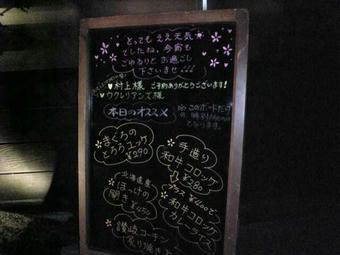 とっても ええ天気
でしたね。今宵も
ごゆるりと お過ごし
下さいませ♪♪♪
♥村上様 ご予約ありがとうございます!
♥ウクレリアンズ様
本日のオススメ
このボードだけ
まぐろの
とろろユッケ
¥290
手造り
和牛コロッケ
¥280
プラス ¥400で
和牛コロッケ
カレーライス
北海道産
ほっけの
開き
¥650
讃岐コーチン
炙り焼き